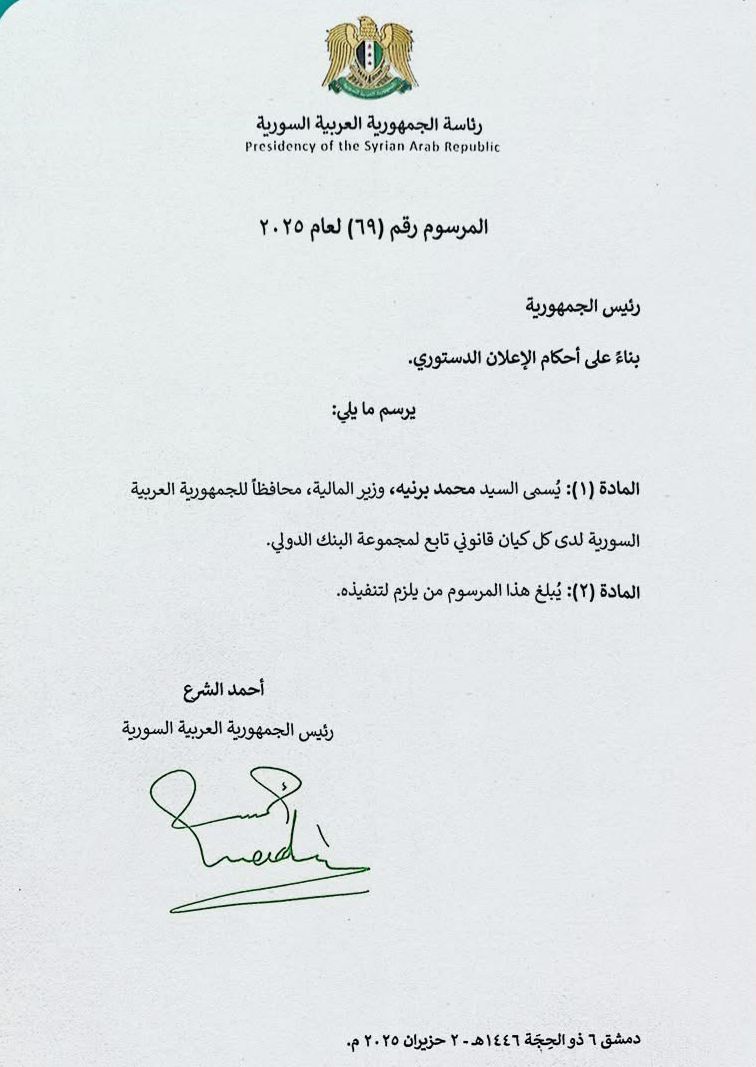 رئاسة الجمهورية العربية السورية
Presidency of the Syrian Arab Republic
المرسوم رقم (٦٩) لعام ٢٠٢٥
رئيس الجمهورية
بناءً على أحكام الإعلان الدستوري.
يرسم ما يلي:
المادة (١): يُسمى السيد محمد برنيه، وزير المالية، محافظاً للجمهورية العربية
السورية لدى كل كيان قانوني تابع لمجموعة البنك الدولي.
المادة (٢): يُبلغ هذا المرسوم من يلزم لتنفيذه.
أحمد الشرع
رئيس الجمهورية العربية السورية
دمشق ٦ ذو الحِجَة ١٤٤٦هـ - ٢ حزيران ٢٠٢٥ م.